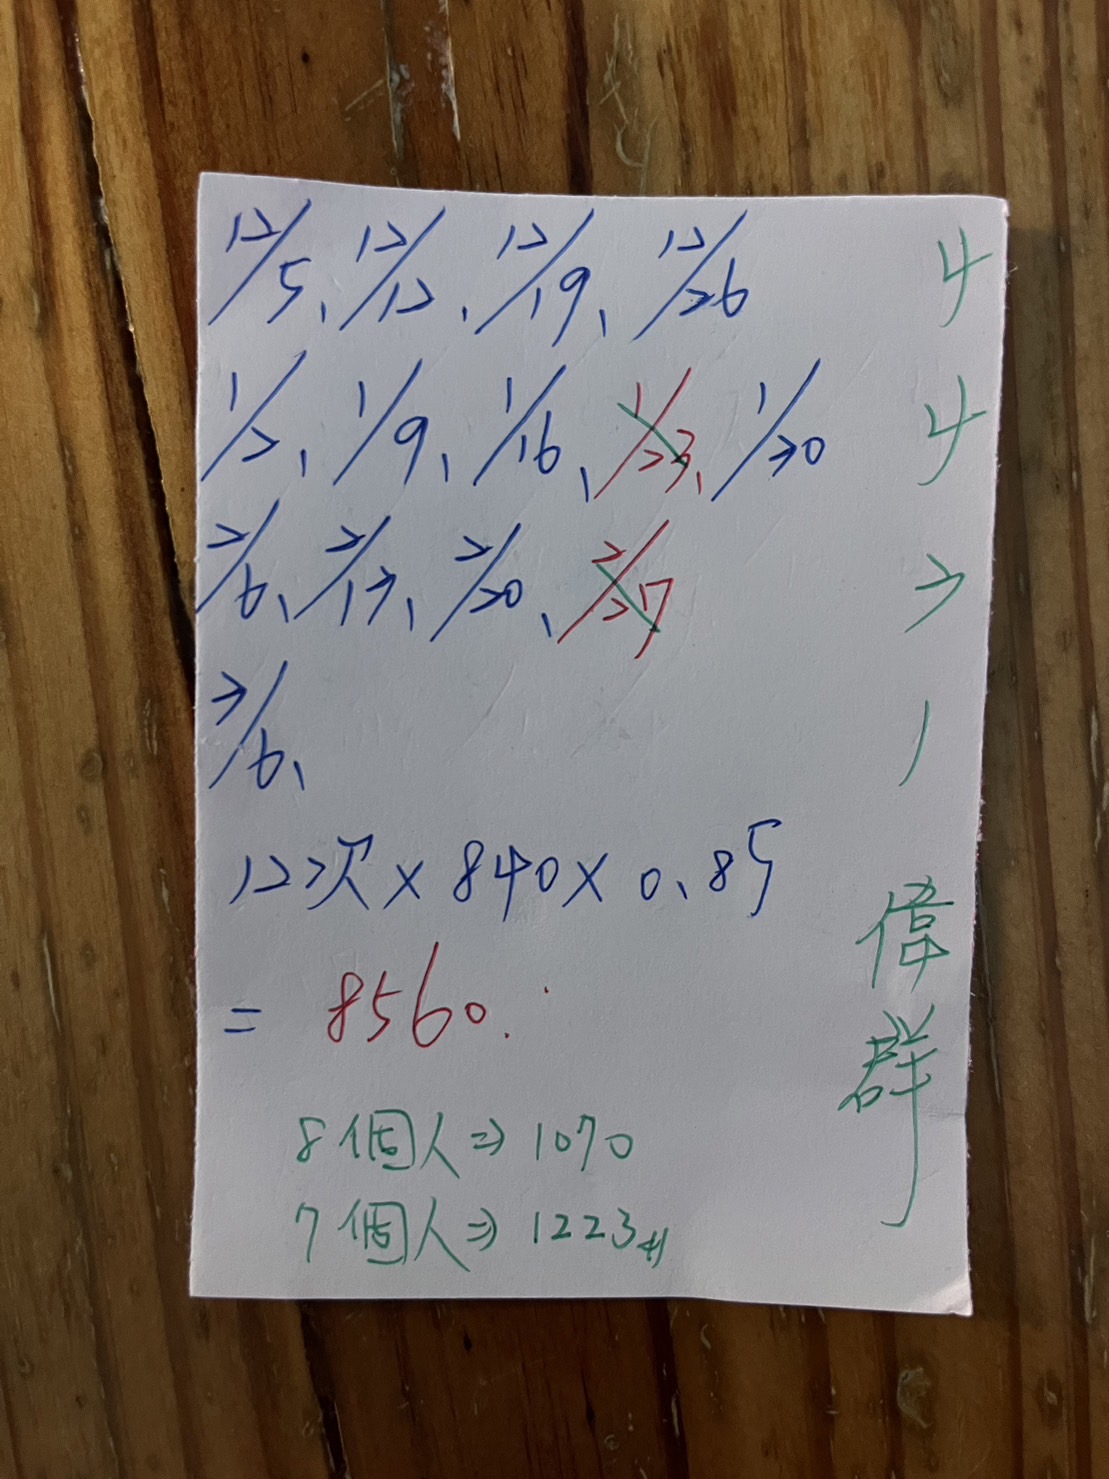 12/5、12/12、12/19、12/26 4
1/2、1/9、1/16、1/23、1/30 4
2/6、2/13、2/20、2/27 3
3/6、 1
12次×840×0.85
= 8560.
8個人⇒1070
7個人⇒1223#
偉群